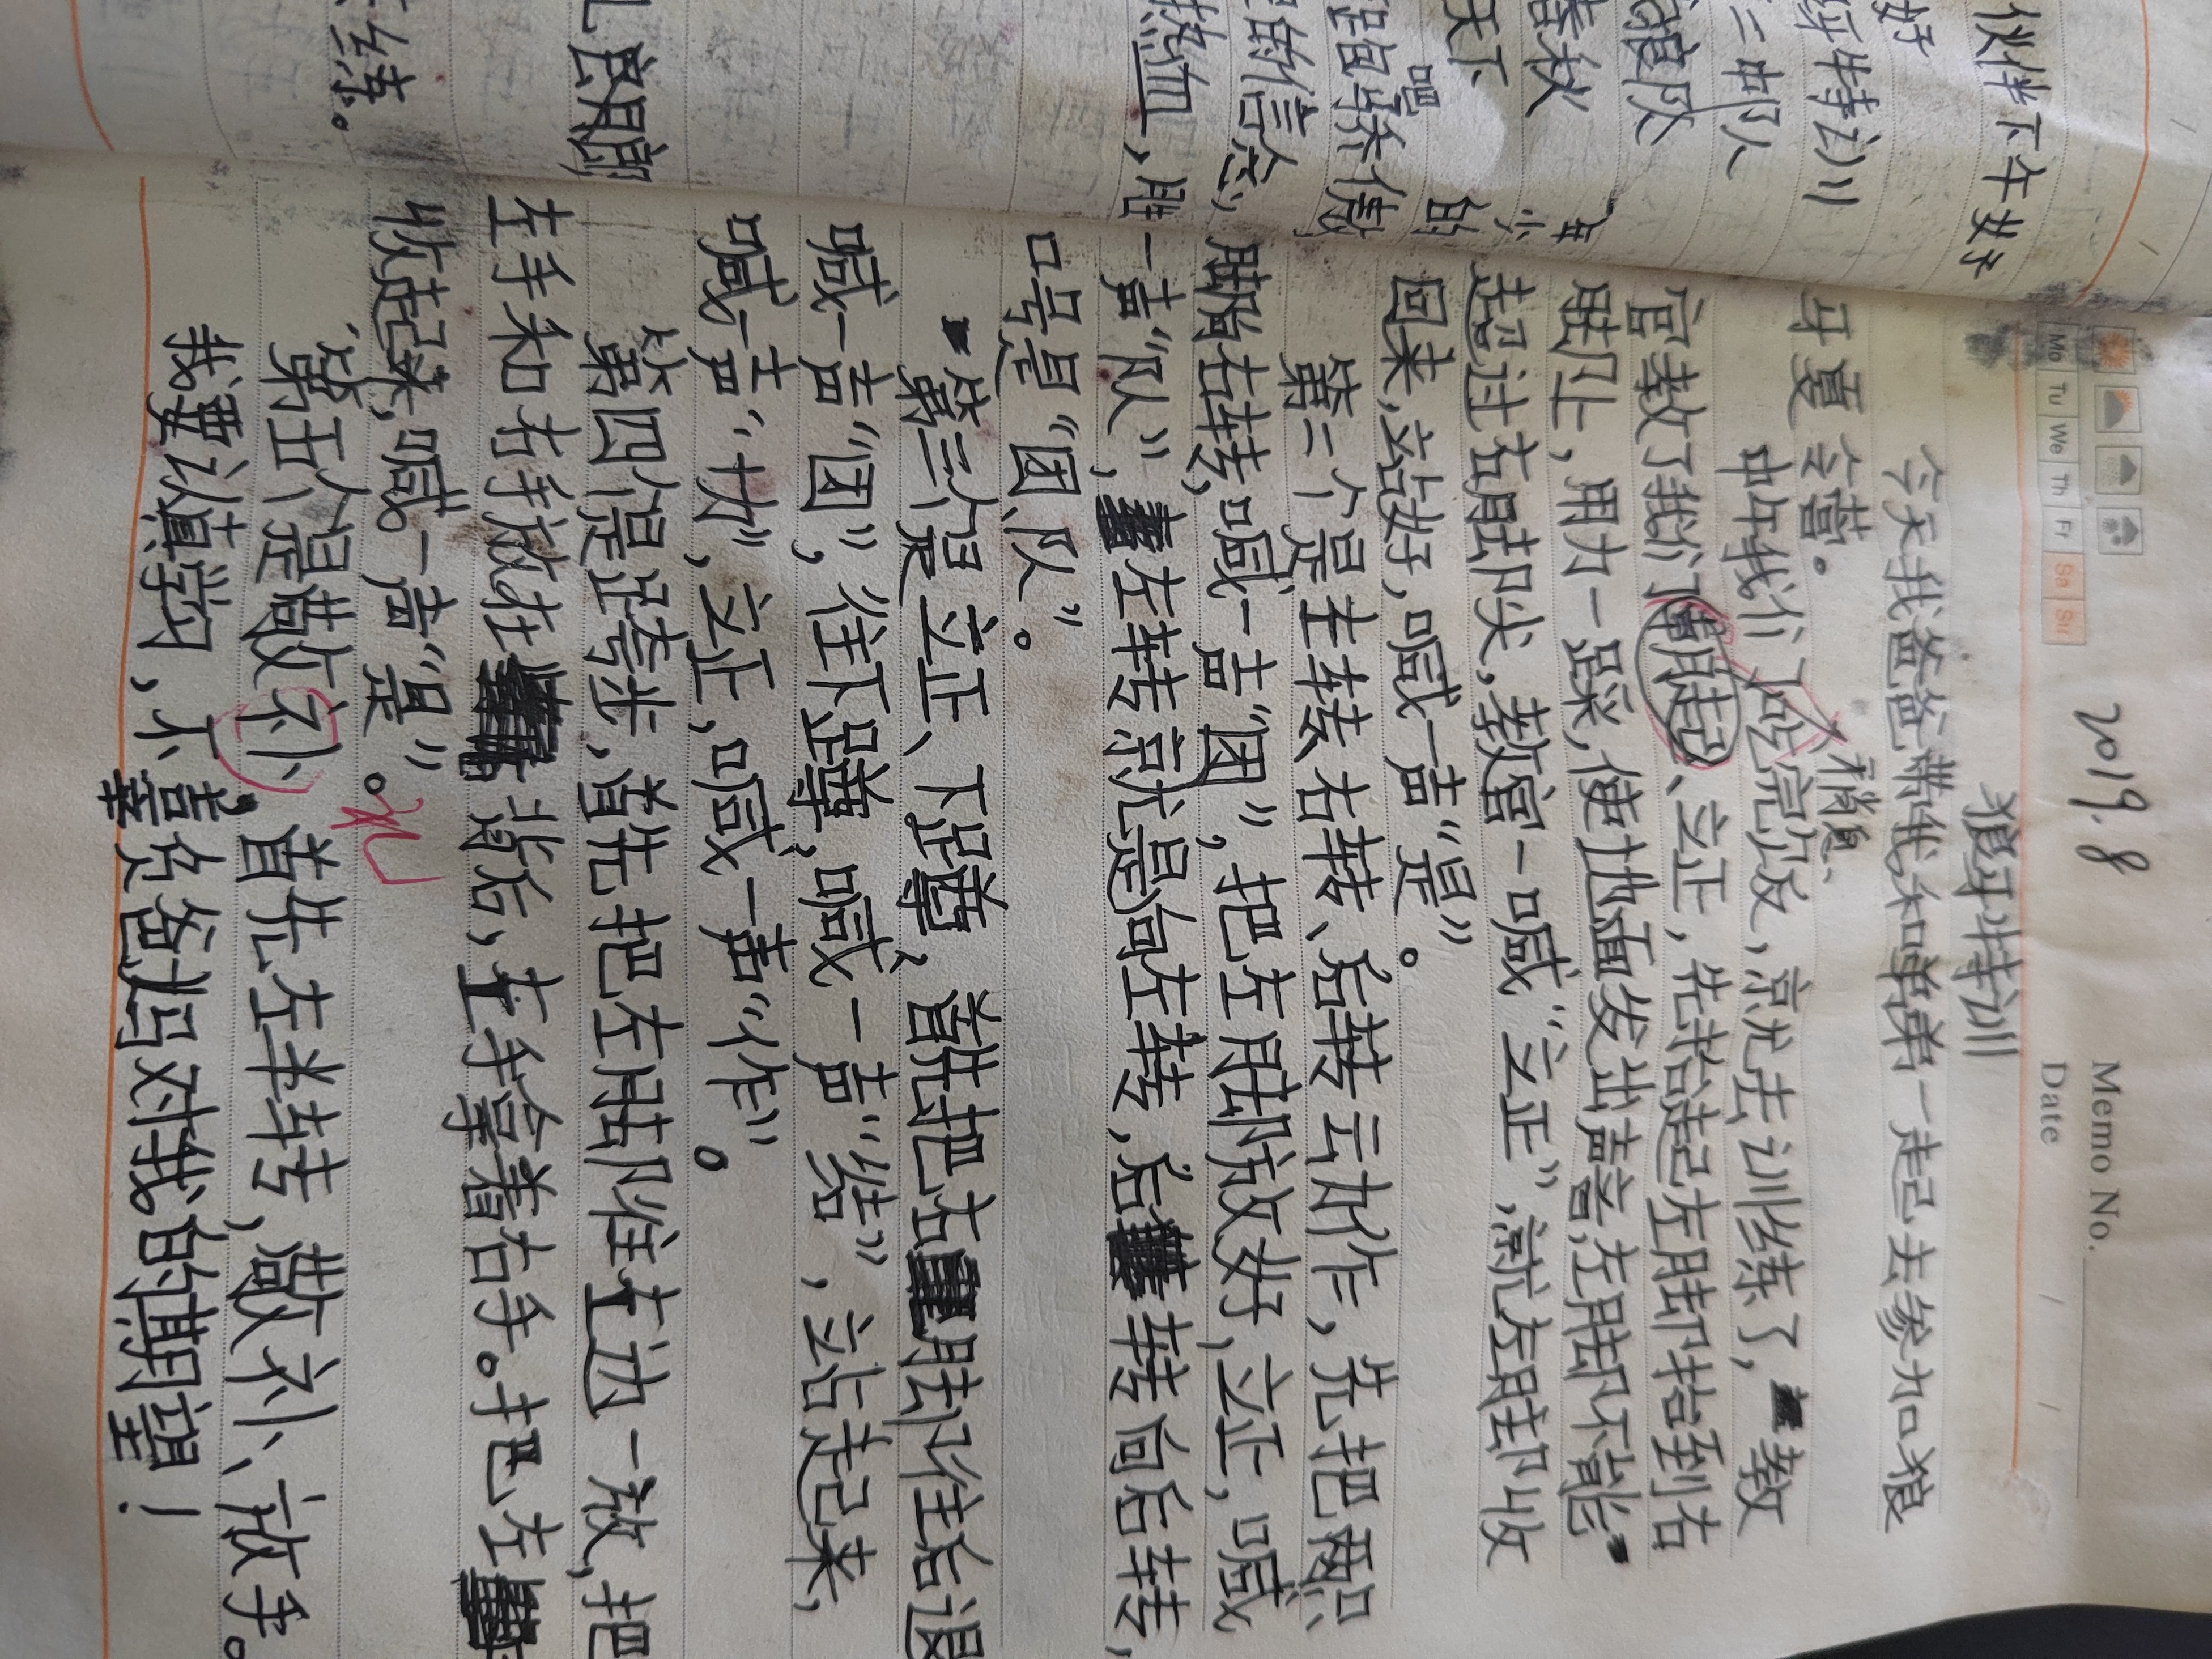 伙伴下午好
好
牙特训
二中队
狼队
春秋
天下
吧
骄傲
的信念,
热血,胜
少年
的
练。
2019.8
Memo No.
Date / /
Mo Tu We Th Fr Sa Su
狼牙特训
今天我爸爸带我和弟弟一起去参加狼
牙夏令营。
中午我们吃完饭,稍息、就去训练了,教
官教了我们、立正,先抬起左脚抬到右
脚上,用力一踩,使地面发出声音,左脚不能
超过右脚尖,教官一喊“立正”,就左脚收
回来,站好,喊一声“是”。
第二个是左转、右转、后转云力作,先把两只
脚尚右转,喊一声“团”,把左脚放好,立正,喊
一声“队”,左转就是向左转,后转向后转,
口号是“团队”。
第三个是立正、下蹲,首先把右脚往后退
喊一声“团”,往下蹲,喊一声“结”,站起来,
喊一声“协”,立正,喊一声“作”。
第四个是跨步,首先把左脚往左边一放,把
左手和右手放在背后,左手拿着右手。把左
收起来,喊一声“是”。
第五个是敬礼,首先左半转,敬礼、放手。
我要认真学习,不辜负爸妈对我的期望!